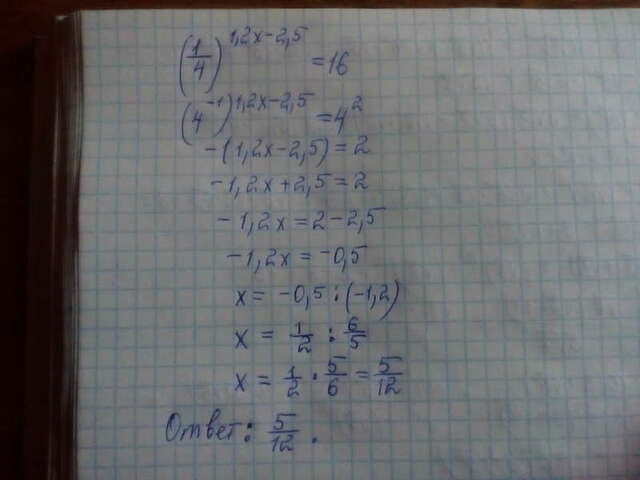 (1/4)^(1,2x-2,5) = 16
(4^(-1))^(1,2x-2,5) = 4^2
-(1,2x-2,5) = 2
-1,2x+2,5 = 2
-1,2x = 2-2,5
-1,2x = -0,5
x = -0,5 : (-1,2)
x = 1/2 : 6/5
x = 1/2 · 5/6 = 5/12
Ответ: 5/12 .